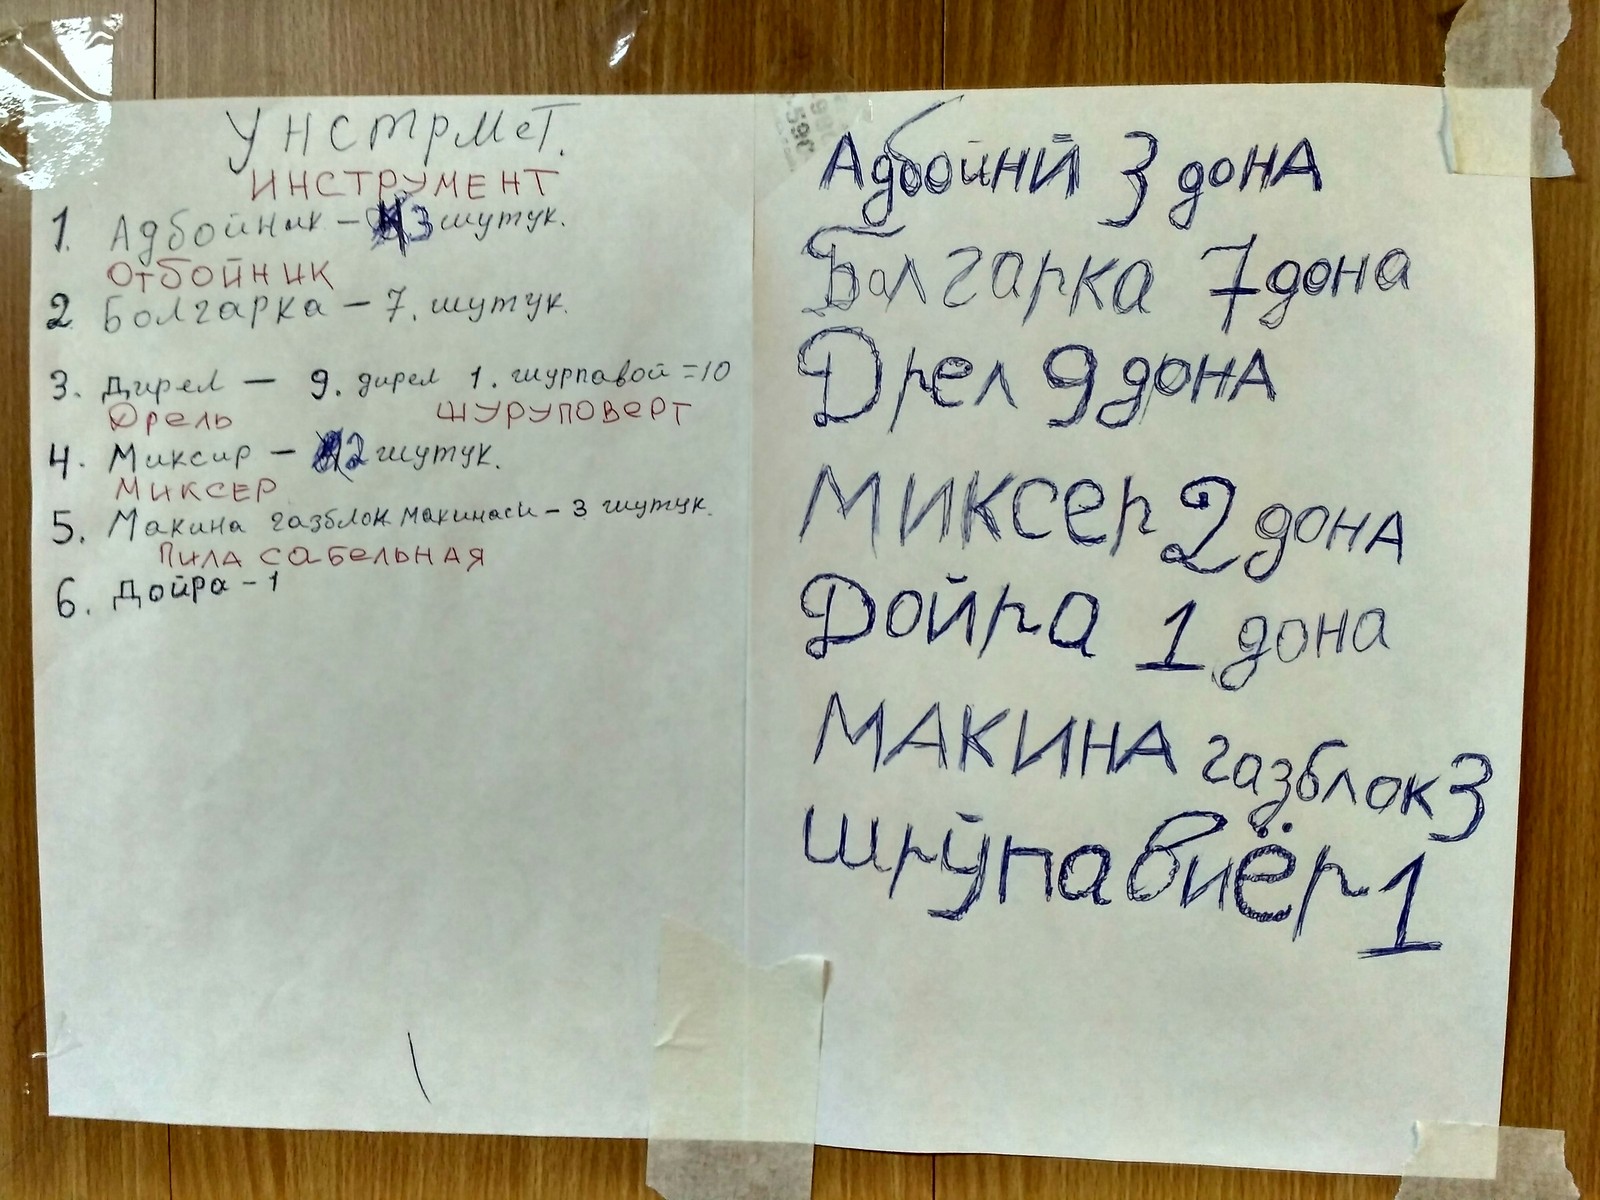 Унстрмет.
ИНСТРУМЕНТ
1. Адбойник - 3 шутук.
ОТБОЙНИК
2 Болгарка - 7. шутук.
3. Дирел - 9. дирел 1. шурпавой = 10
Дрель ШУРУПОВЕРТ
4. Миксир - 2 шутук.
МИКСЕР
5. Макина газблок макинаси - 3 шутук.
Пила сабельная
6. Дойра - 1
Адбойний 3 дона
Болгарка 7 дона
Дрел 9 дона
Миксер 2 дона
Дойра 1 дона
МАКИНА газблок 3
Шрўпавиёр 1